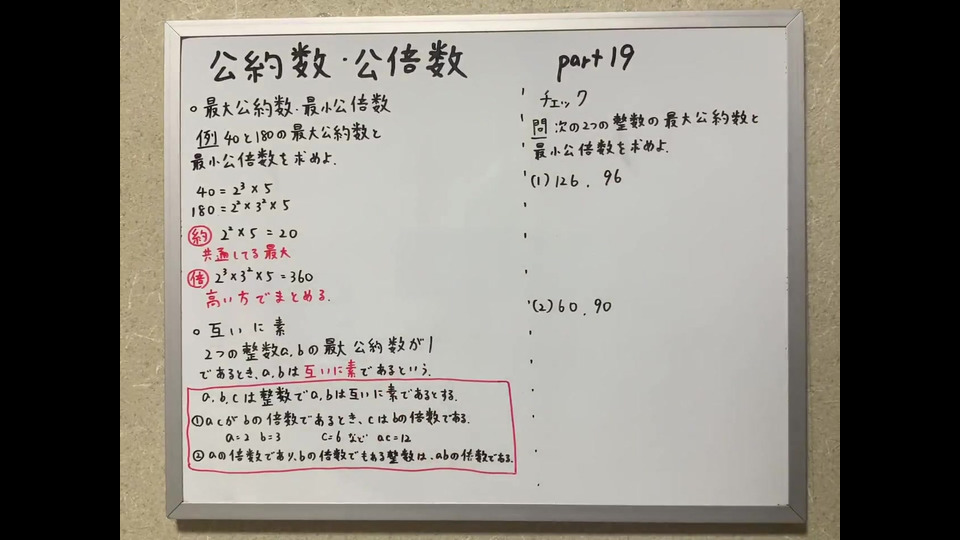 公約数・公倍数
○最大公約数・最小公倍数
例 40と180の最大公約数と
最小公倍数を求めよ.
40=2³×5
180=2²×3²×5
約 2²×5=20
共通してる最大
倍 2³×3²×5=360
高い方でまとめる.
○互いに素
2つの整数a,bの最大公約数が1
であるとき、a,bは互いに素であるという.
a,b,cは整数でa,bは互いに素であるとする.
①acがbの倍数であるとき、cはbの倍数である.
a=2 b=3 c=6 など ac=12
②aの倍数であり、bの倍数でもある整数は、abの倍数である.
part19
チェック
問 次の2つの整数の最大公約数と
最小公倍数を求めよ.
(1)126, 96
(2)60, 90